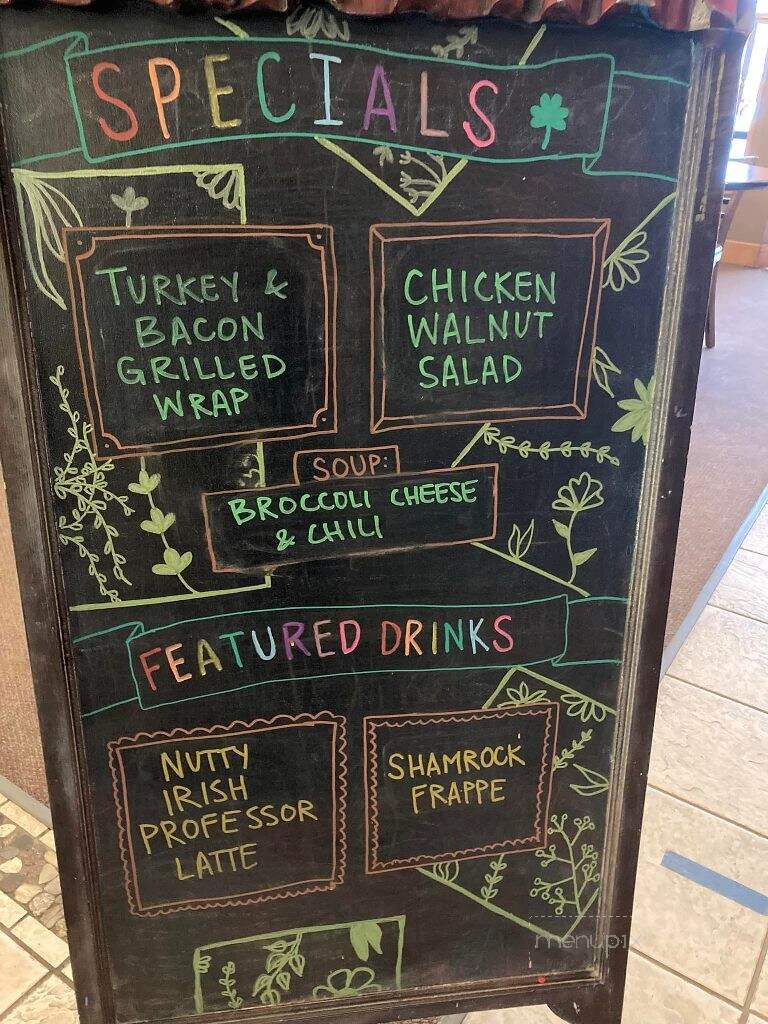 SPECIALS
TURKEY &
BACON
GRILLED
WRAP
CHICKEN
WALNUT
SALAD
SOUP:
BROCCOLI CHEESE
& CHILI
FEATURED DRINKS
NUTTY
IRISH
PROFESSOR
LATTE
SHAMROCK
FRAPPE
menupix